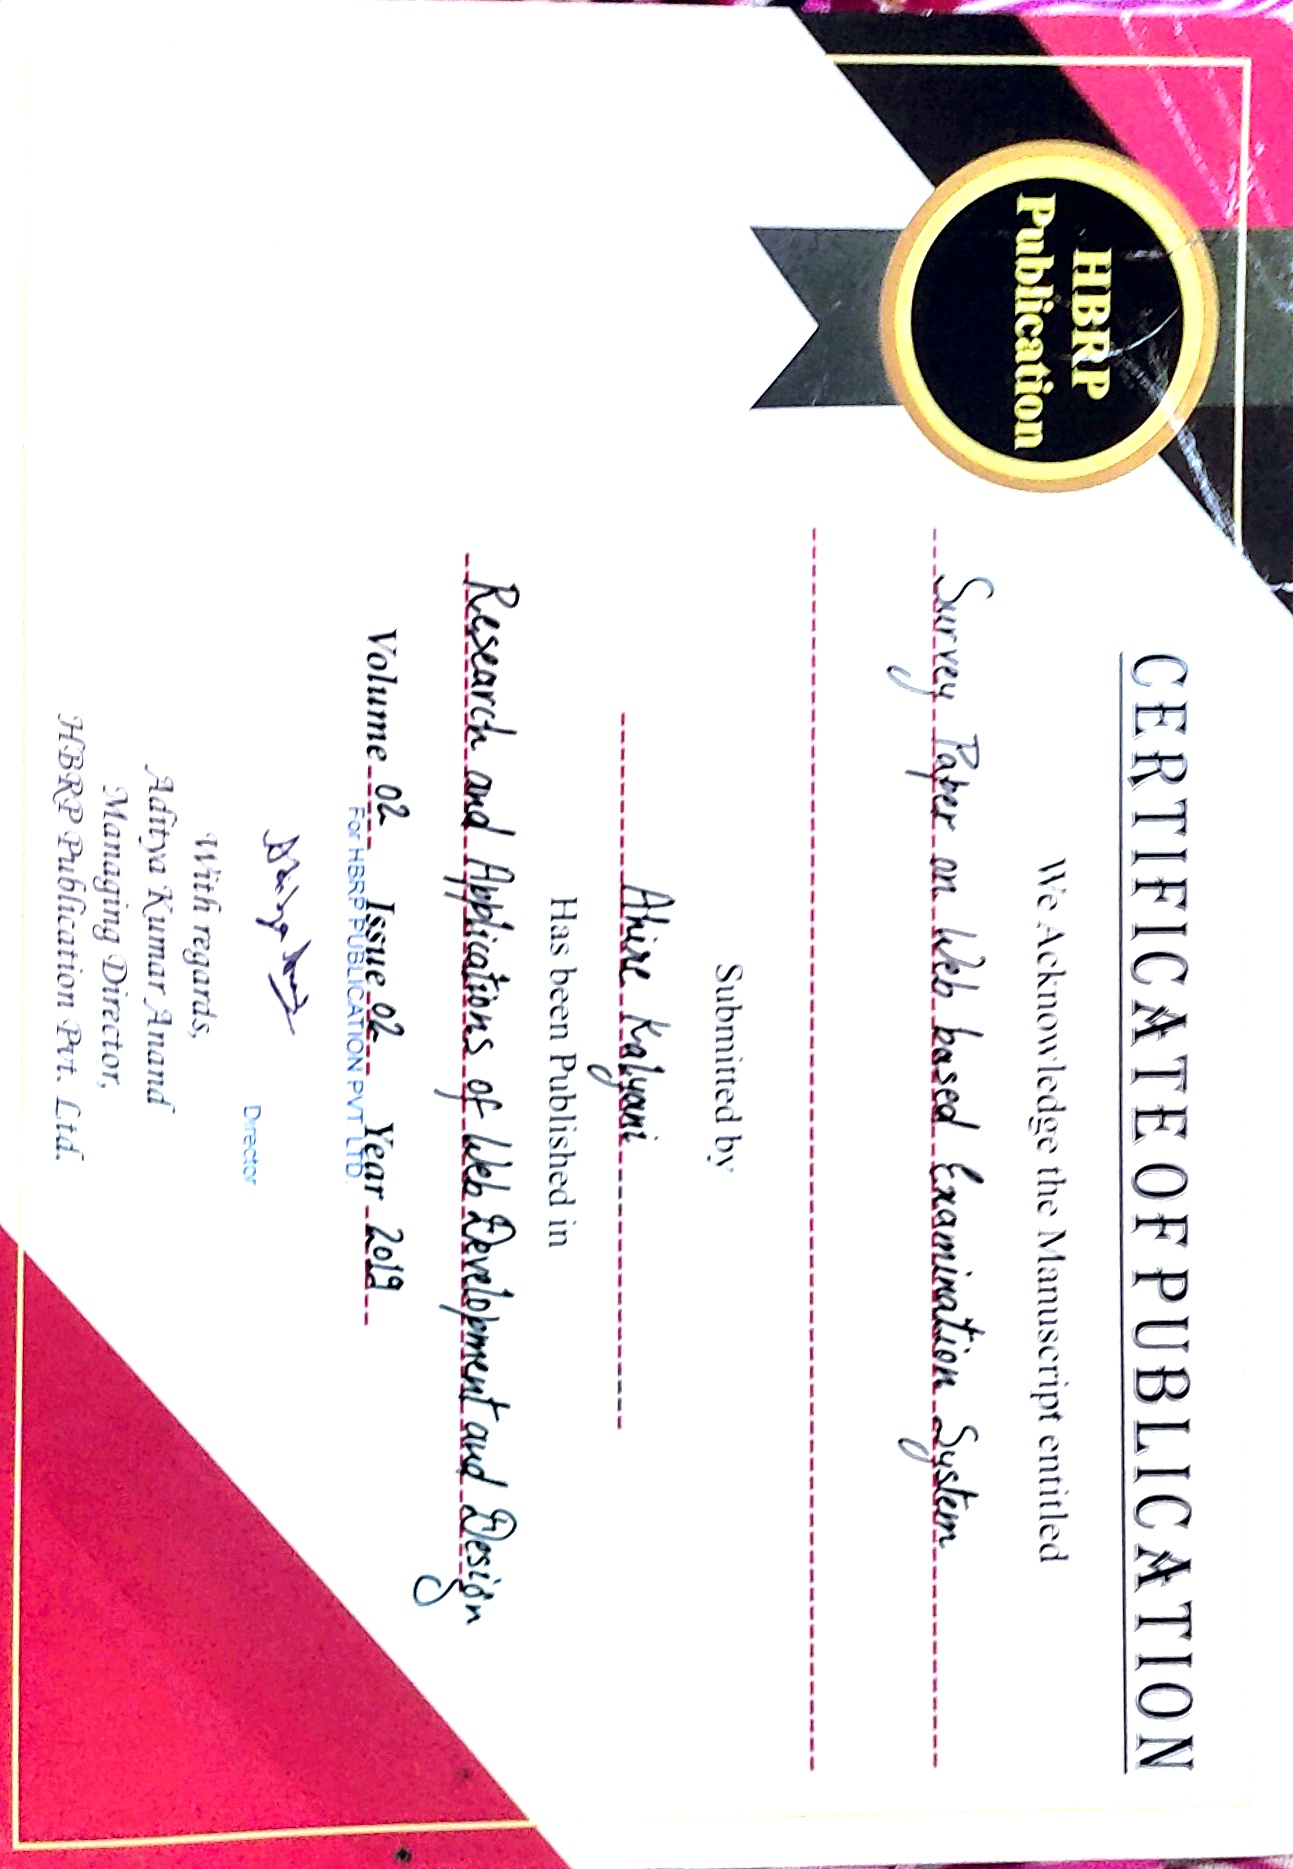 HBRP
Publication
CERTIFICATE OF PUBLICATION
We Acknowledge the Manuscript entitled
Survey Paper on Web based Examination System
Submitted by
Ahire Kalyani
Has been Published in
Research and Applications of Web Development and Design
Volume 02 Issue 02 Year 2019
For HBRP PUBLICATION PVT. LTD.
Director
With regards,
Aditya Kumar Anand
Managing Director,
HBRP Publication Pvt. Ltd.